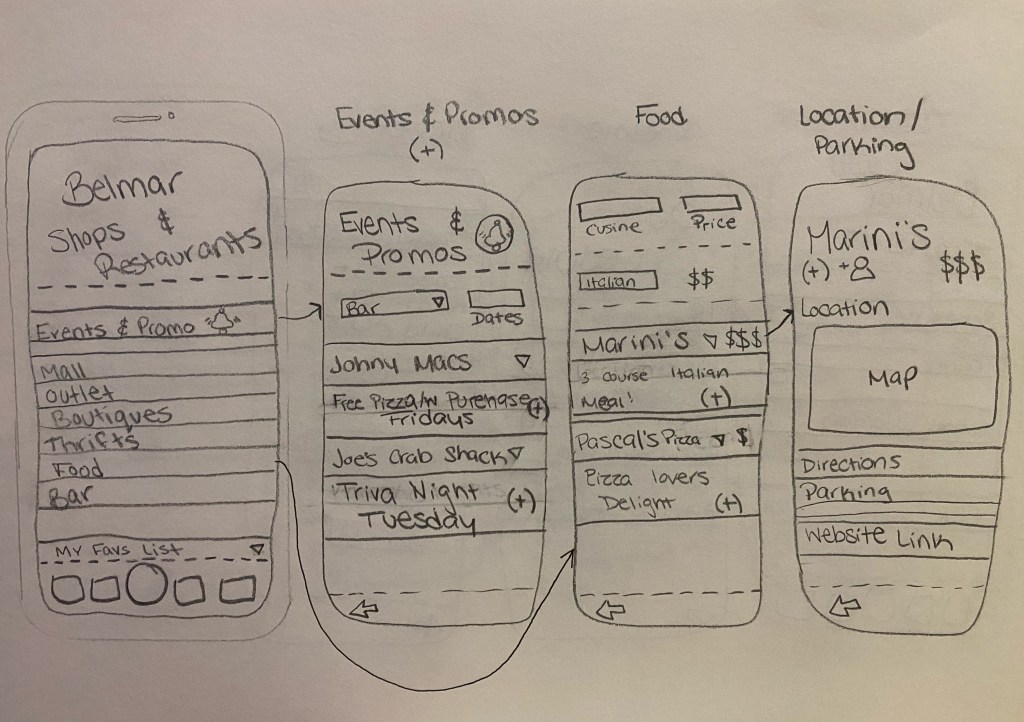 Events & Promos
(+)
Food
Location/
Parking
Belmar
Shops &
Restaurants
Events & Promo
Mall
outlet
Boutiques
Thrifts
Food
Bar
My Favs List
Events &
Promos
Bar
Dates
Johny Macs
Free Pizza/w Purchase
(+)
Fridays
Joe's Crab Shack
Triva Night
(+)
Tuesday
Cusine
Price
Italian
$$
Marini's $$$
3 course Italian
Meal! (+)
Pascal's Pizza $
Pizza lovers
Delight (+)
Marini's
(+) +
$$$
Location
Map
Directions
Parking
Website Link